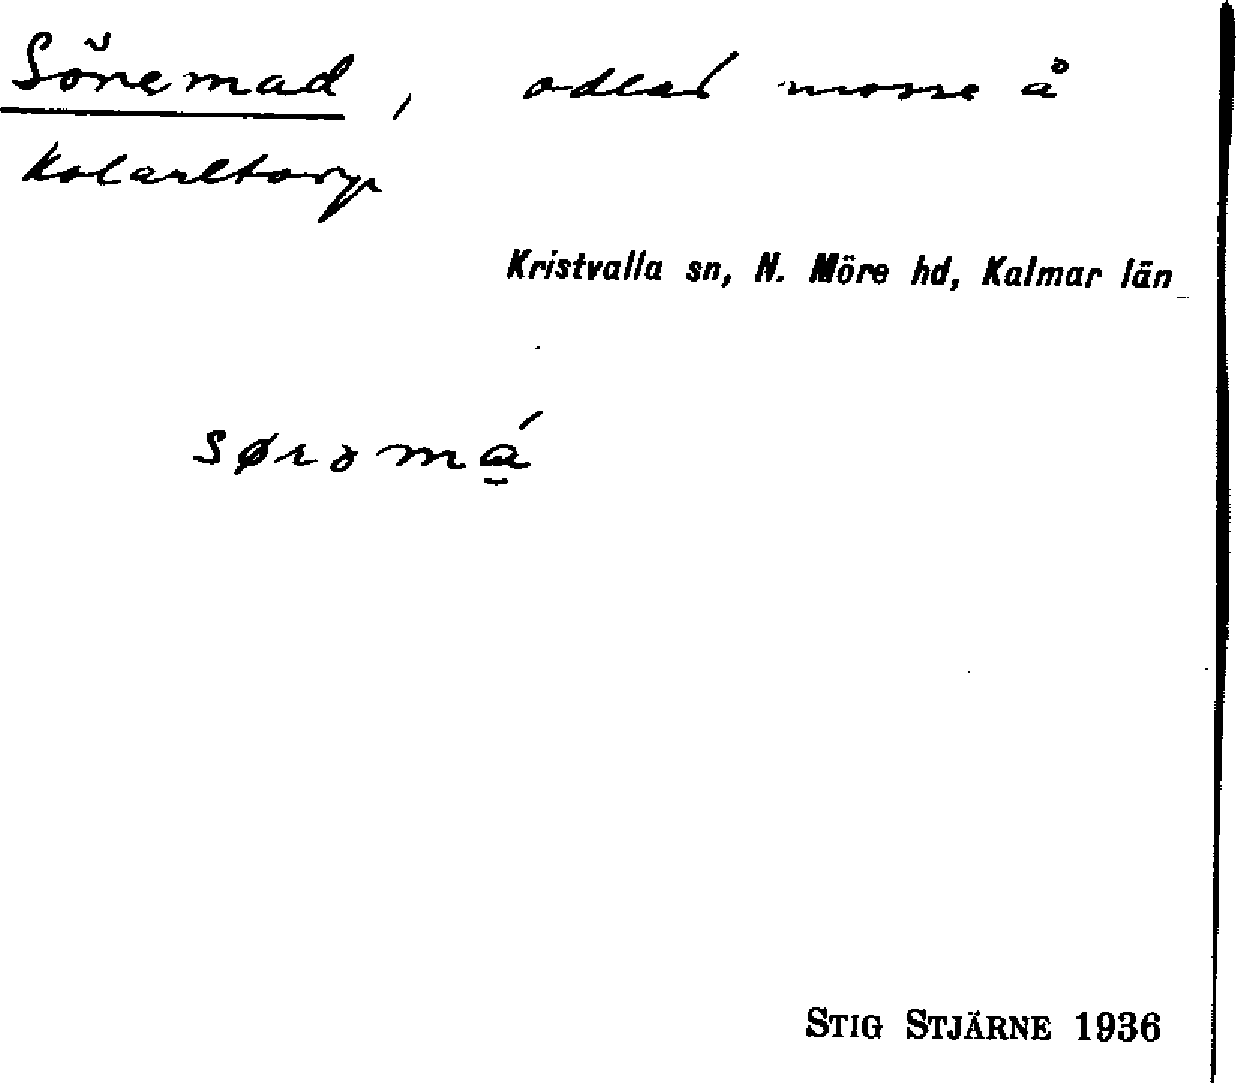 Sönemad, odlad mosse å
Kolaretorp
Kristvalla sn, N. Möre hd, Kalmar län
STIG STJÄRNE 1936